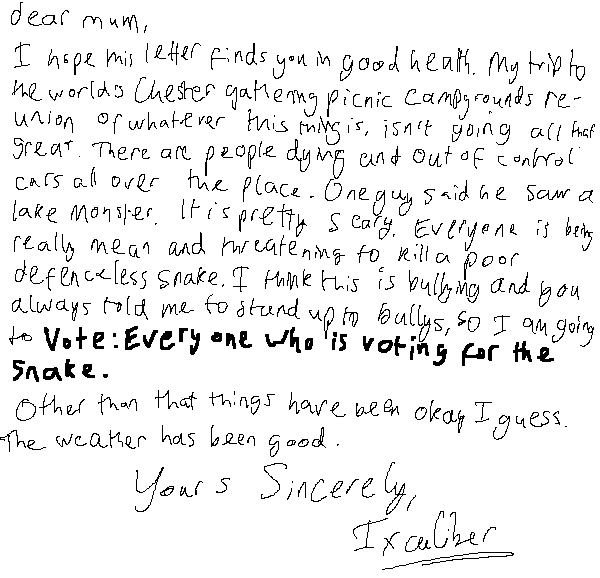 dear mum,
I hope this letter finds you in good health. My trip to
the worlds Chester gathering picnic campgrounds re-
union of whatever this thing is, isn't going all that
great. There are people dying and out of control
cars all over the place. One guy said he saw a
lake monster. It is pretty scary. Everyone is being
really mean and threatening to kill a poor
defenceless snake. I think this is bullying and you
always told me to stand up to bullys, so I am going
to Vote: Everyone who is voting for the
snake.
Other than that things have been okay I guess.
The weather has been good.
Yours Sincerely,
Ixcaliber